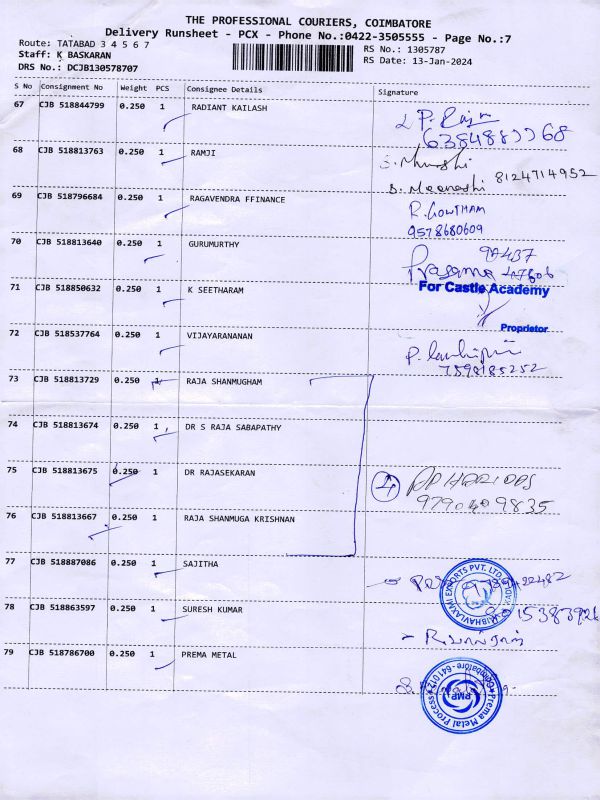 THE PROFESSIONAL COURIERS, COIMBATORE
Delivery Runsheet - PCX - Phone No.:0422-3505555 - Page No.:7
Route: TATABAD 3 4 5 6 7
RS No.: 1305787
Staff: K BASKARAN
RS Date: 13-Jan-2024
DRS No.: DCJB130578707
S No Consignment No Weight PCS Consignee Details Signature
67 CJB 518844799 0.250 1 RADIANT KAILASH
68 CJB 518813763 0.250 1 RAMJI
S. Meenashi 8124714952
69 CJB 518796684 0.250 1 RAGAVENDRA FFINANCE R. GOWTHAM
9578680609
70 CJB 518813640 0.250 1 GURUMURTHY
71 CJB 518850632 0.250 1 K SEETHARAM For Castle Academy
Proprietor
72 CJB 518537764 0.250 1 VIJAYARANANAN
7598185252
73 CJB 518813729 0.250 1 RAJA SHANMUGHAM
74 CJB 518813674 0.250 1 DR S RAJA SABAPATHY
75 CJB 518813675 0.250 1 DR RAJASEKARAN 4
76 CJB 518813667 0.250 1 RAJA SHANMUGA KRISHNAN
77 CJB 518887086 0.250 1 SAJITHA
78 CJB 518863597 0.250 1 SURESH KUMAR
79 CJB 518786700 0.250 1 PREMA METAL
Prema Metal Process
Coimbatore - 641 012
PMP